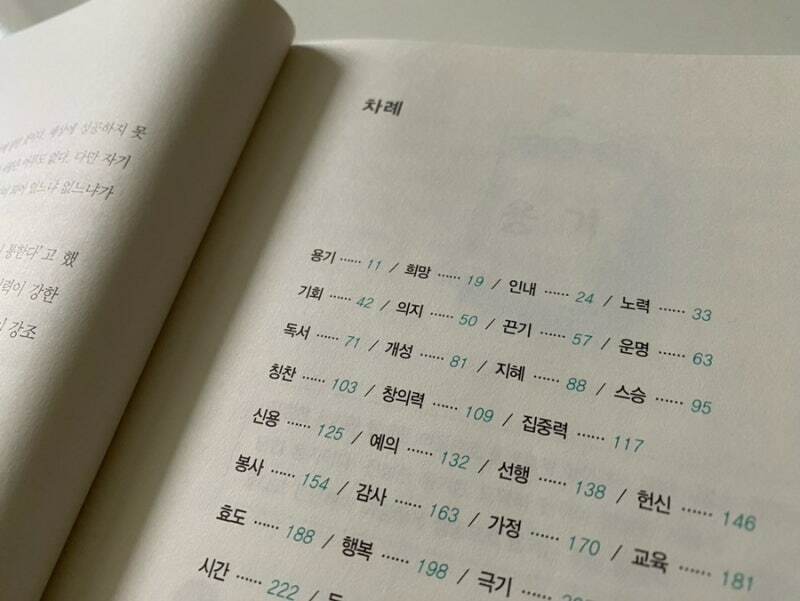 성공하지 못
없다. 다만 자기
있느냐 없느냐가
통한다'고 했
력이 강한
강조
차례
용기 ······ 11 / 희망 ······ 19 / 인내 ······ 24 / 노력 ······ 33
기회 ······ 42 / 의지 ······ 50 / 끈기 ······ 57 / 운명 ······ 63
독서 ······ 71 / 개성 ······ 81 / 지혜 ······ 88 / 스승 ······ 95
칭찬 ······ 103 / 창의력 ······ 109 / 집중력 ······ 117
신용 ······ 125 / 예의 ······ 132 / 선행 ······ 138 / 헌신 ······ 146
봉사 ······ 154 / 감사 ······ 163 / 가정 ······ 170 / 교육 ······ 181
효도 ······ 188 / 행복 ······ 198 / 극기 ······
시간 ······ 222 /